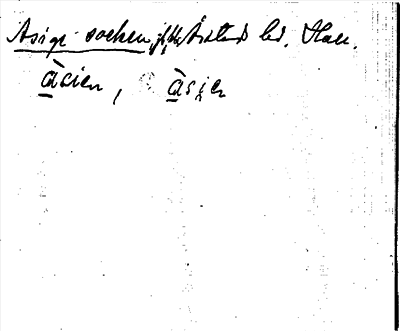 Asige socken, Årstads hd. Hall.
àcien, àsien